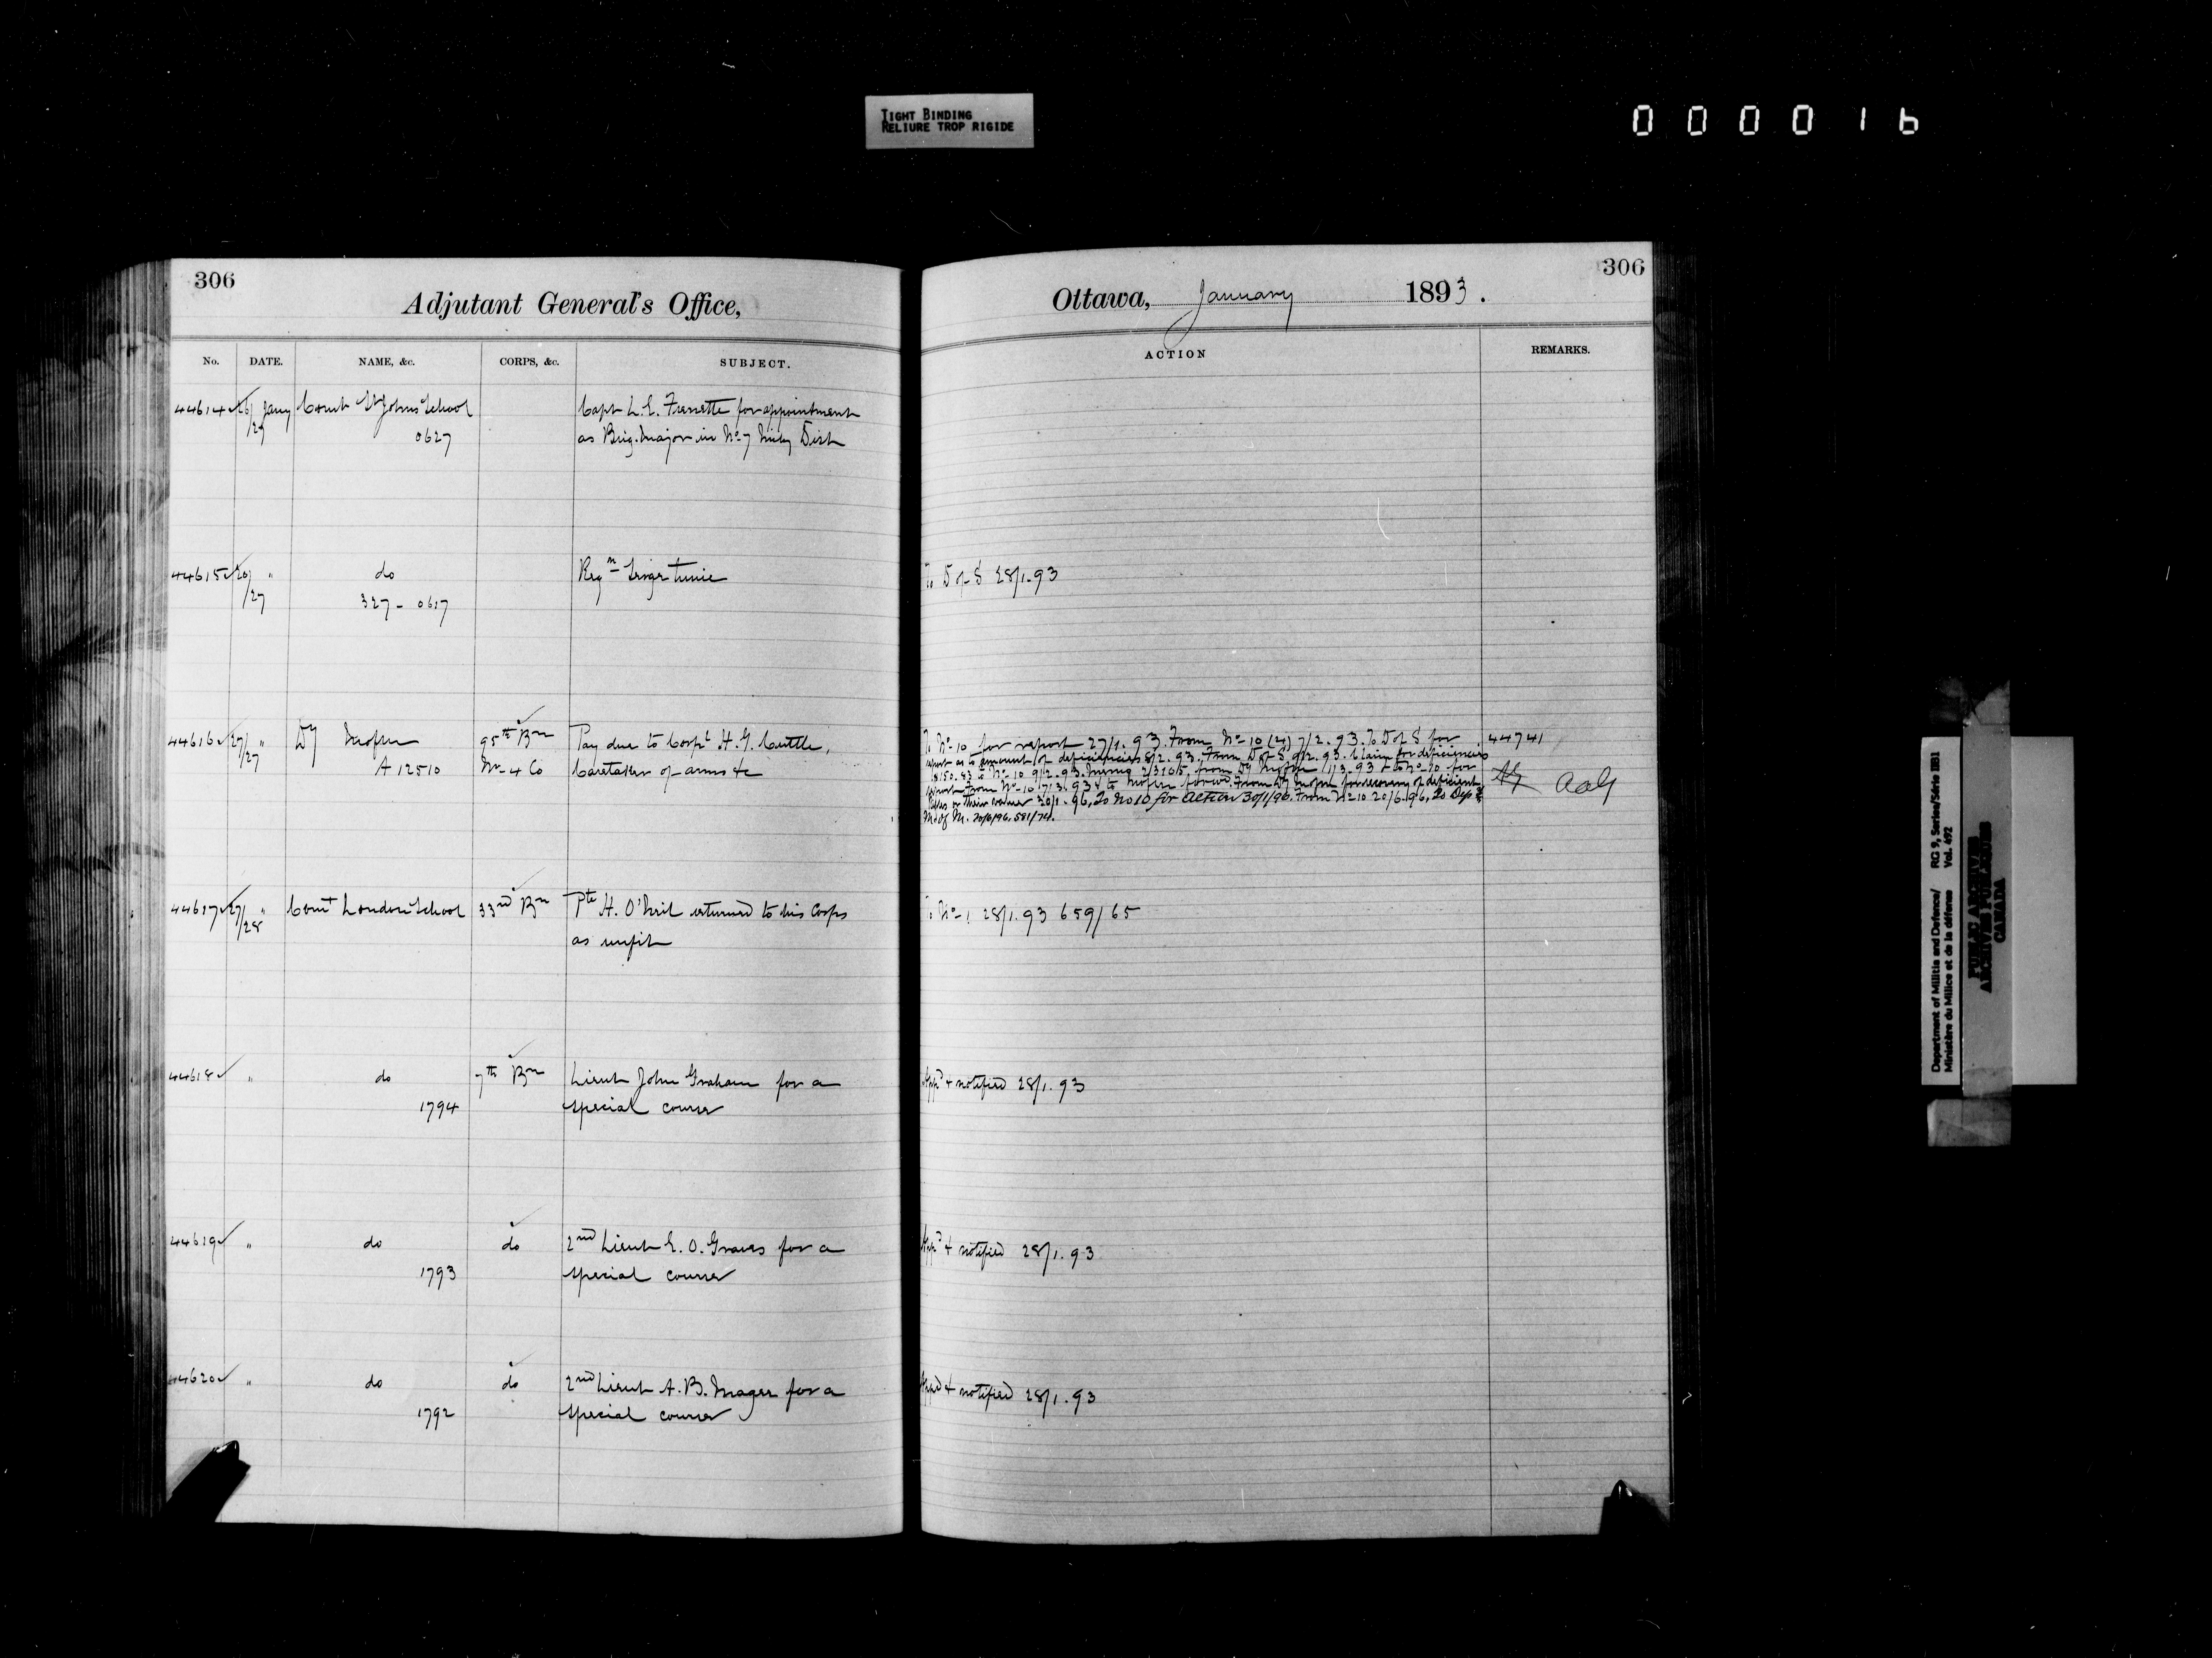 TIGHT BINDING
RELIURE TROP RIGIDE
000016
306
Adjutant General's Office,
No. DATE. NAME, &c. CORPS, &c. SUBJECT.
44614 26/27 Jany Comt St Johns School Capt L. E. Frenette for appointment
0627 as Brig. Major in No 7 Mily Dist
44615 26/27 " do Regn Serge tunic
327 - 0617
44616 27/27 " Dy 95th Bn Pay due to Corpl H. G. Cuttle,
A 12510 No 4 Co Caretaker of arms &c
44617 27/28 " Comt London School 33rd Bn Pte H. O'Neil returned to his Corps
as unfit
44618 " do 7th Bn Lieut John Graham for a
1794 special course
44619 " do do 2nd Lieut E. O. Graves for a
1793 special course
44620 " do do 2nd Lieut A. B. Mager for a
1792 special course
306
Ottawa, January 1893.
ACTION REMARKS.
To D of S 28/1.93
To No 10 for report 27/1.93. From No 10 (24) 7/2.93. To D of S for 44741
report as to amount of deficiencies 8/2.93. From D of S 9/2.93. Claim for deficiencies
No 10 9/2.93. Memo from Dy 1/3.93 & to No 10 for
report. From No 10 17/3.93 & to From Dy for recovery of deficient AAG
20/1.96, To No 10 for action 30/1/96. From No 10 20/6.96, To Dep
M. of M. 20/6/96. 581/74.
To No 1 28/1.93 659/65
Appd & notified 28/1.93
Appd & notified 28/1.93
Appd & notified 28/1.93
Department of Militia and Defence/ RG 9, Series/Série IIB1
Ministère du Milice et de la défense Vol. 492
PUBLIC ARCHIVES
ARCHIVES PUBLIQUES
CANADA